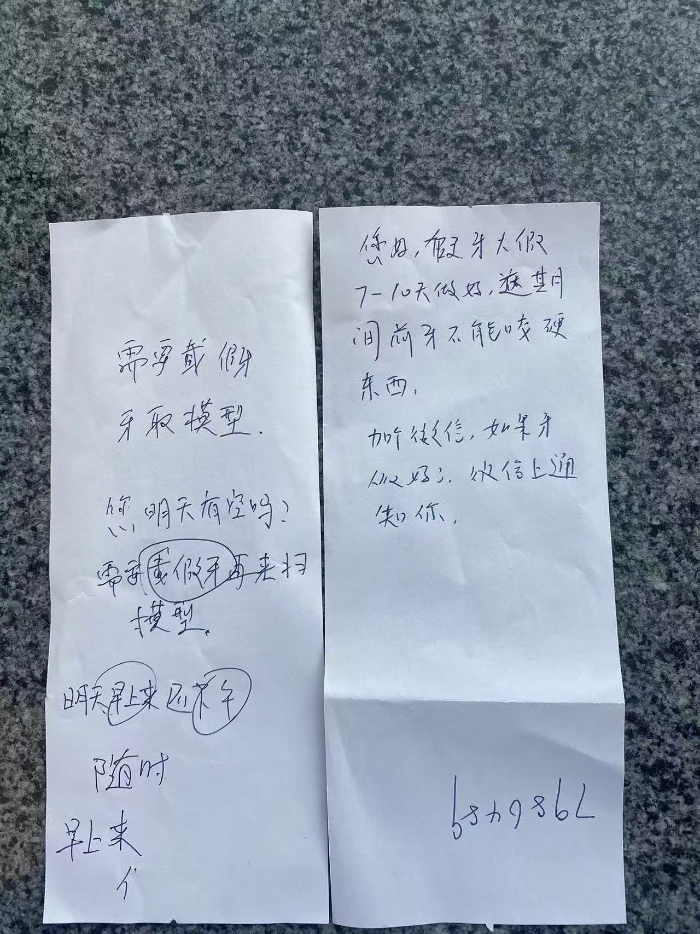 需要戴假牙
牙取模型.
您明天有空吗?
需要戴假牙再来扫
模型.
明天早上来还下午
随时
早上来
亻
您好,假牙大假
7-10天做好,这期
间前牙不能咬硬
东西.
加个微信,如果牙
做好了.微信上通
知你.